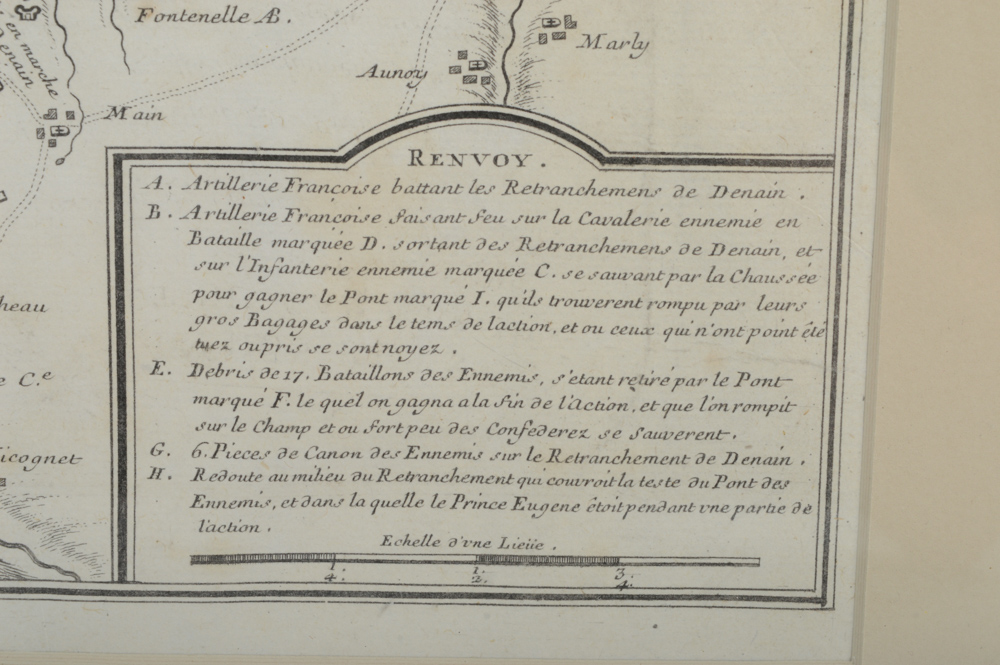 Fontenelle AB.
en marche
Denain
Marly
Aunoy
Main
RENVOY.
A. Artillerie Françoise battant les Retranchemens de Denain.
B. Artillerie Françoise faisant feu sur la Cavalerie ennemie en
Bataille marquée D. sortant des Retranchemens de Denain, et
sur l'Infanterie ennemie marquée C. se sauvant par la Chaussée
pour gagner le Pont marqué I. qu'ils trouverent rompu par leurs
gros Bagages dans le tems de laction, et ou ceux qui n'ont point été
tuez ou pris se sont noyez.
E. Debris de 17. Bataillons des Ennemis, s'etant retiré par le Pont
marqué F. le quel on gagna a la fin de l'action, et que l'on rompit
sur le Champ et ou fort peu des Confederez se sauverent.
G. 6. Pieces de Canon des Ennemis sur le Retranchement de Denain.
H. Redoute au milieu du Retranchement qui couvroit la teste du Pont des
Ennemis, et dans la quelle le Prince Eugene étoit pendant vne partie de
l'action.
Echelle d'vne Lieüe.
1/4. 1/2. 3/4.
heau
e C.e
icognet